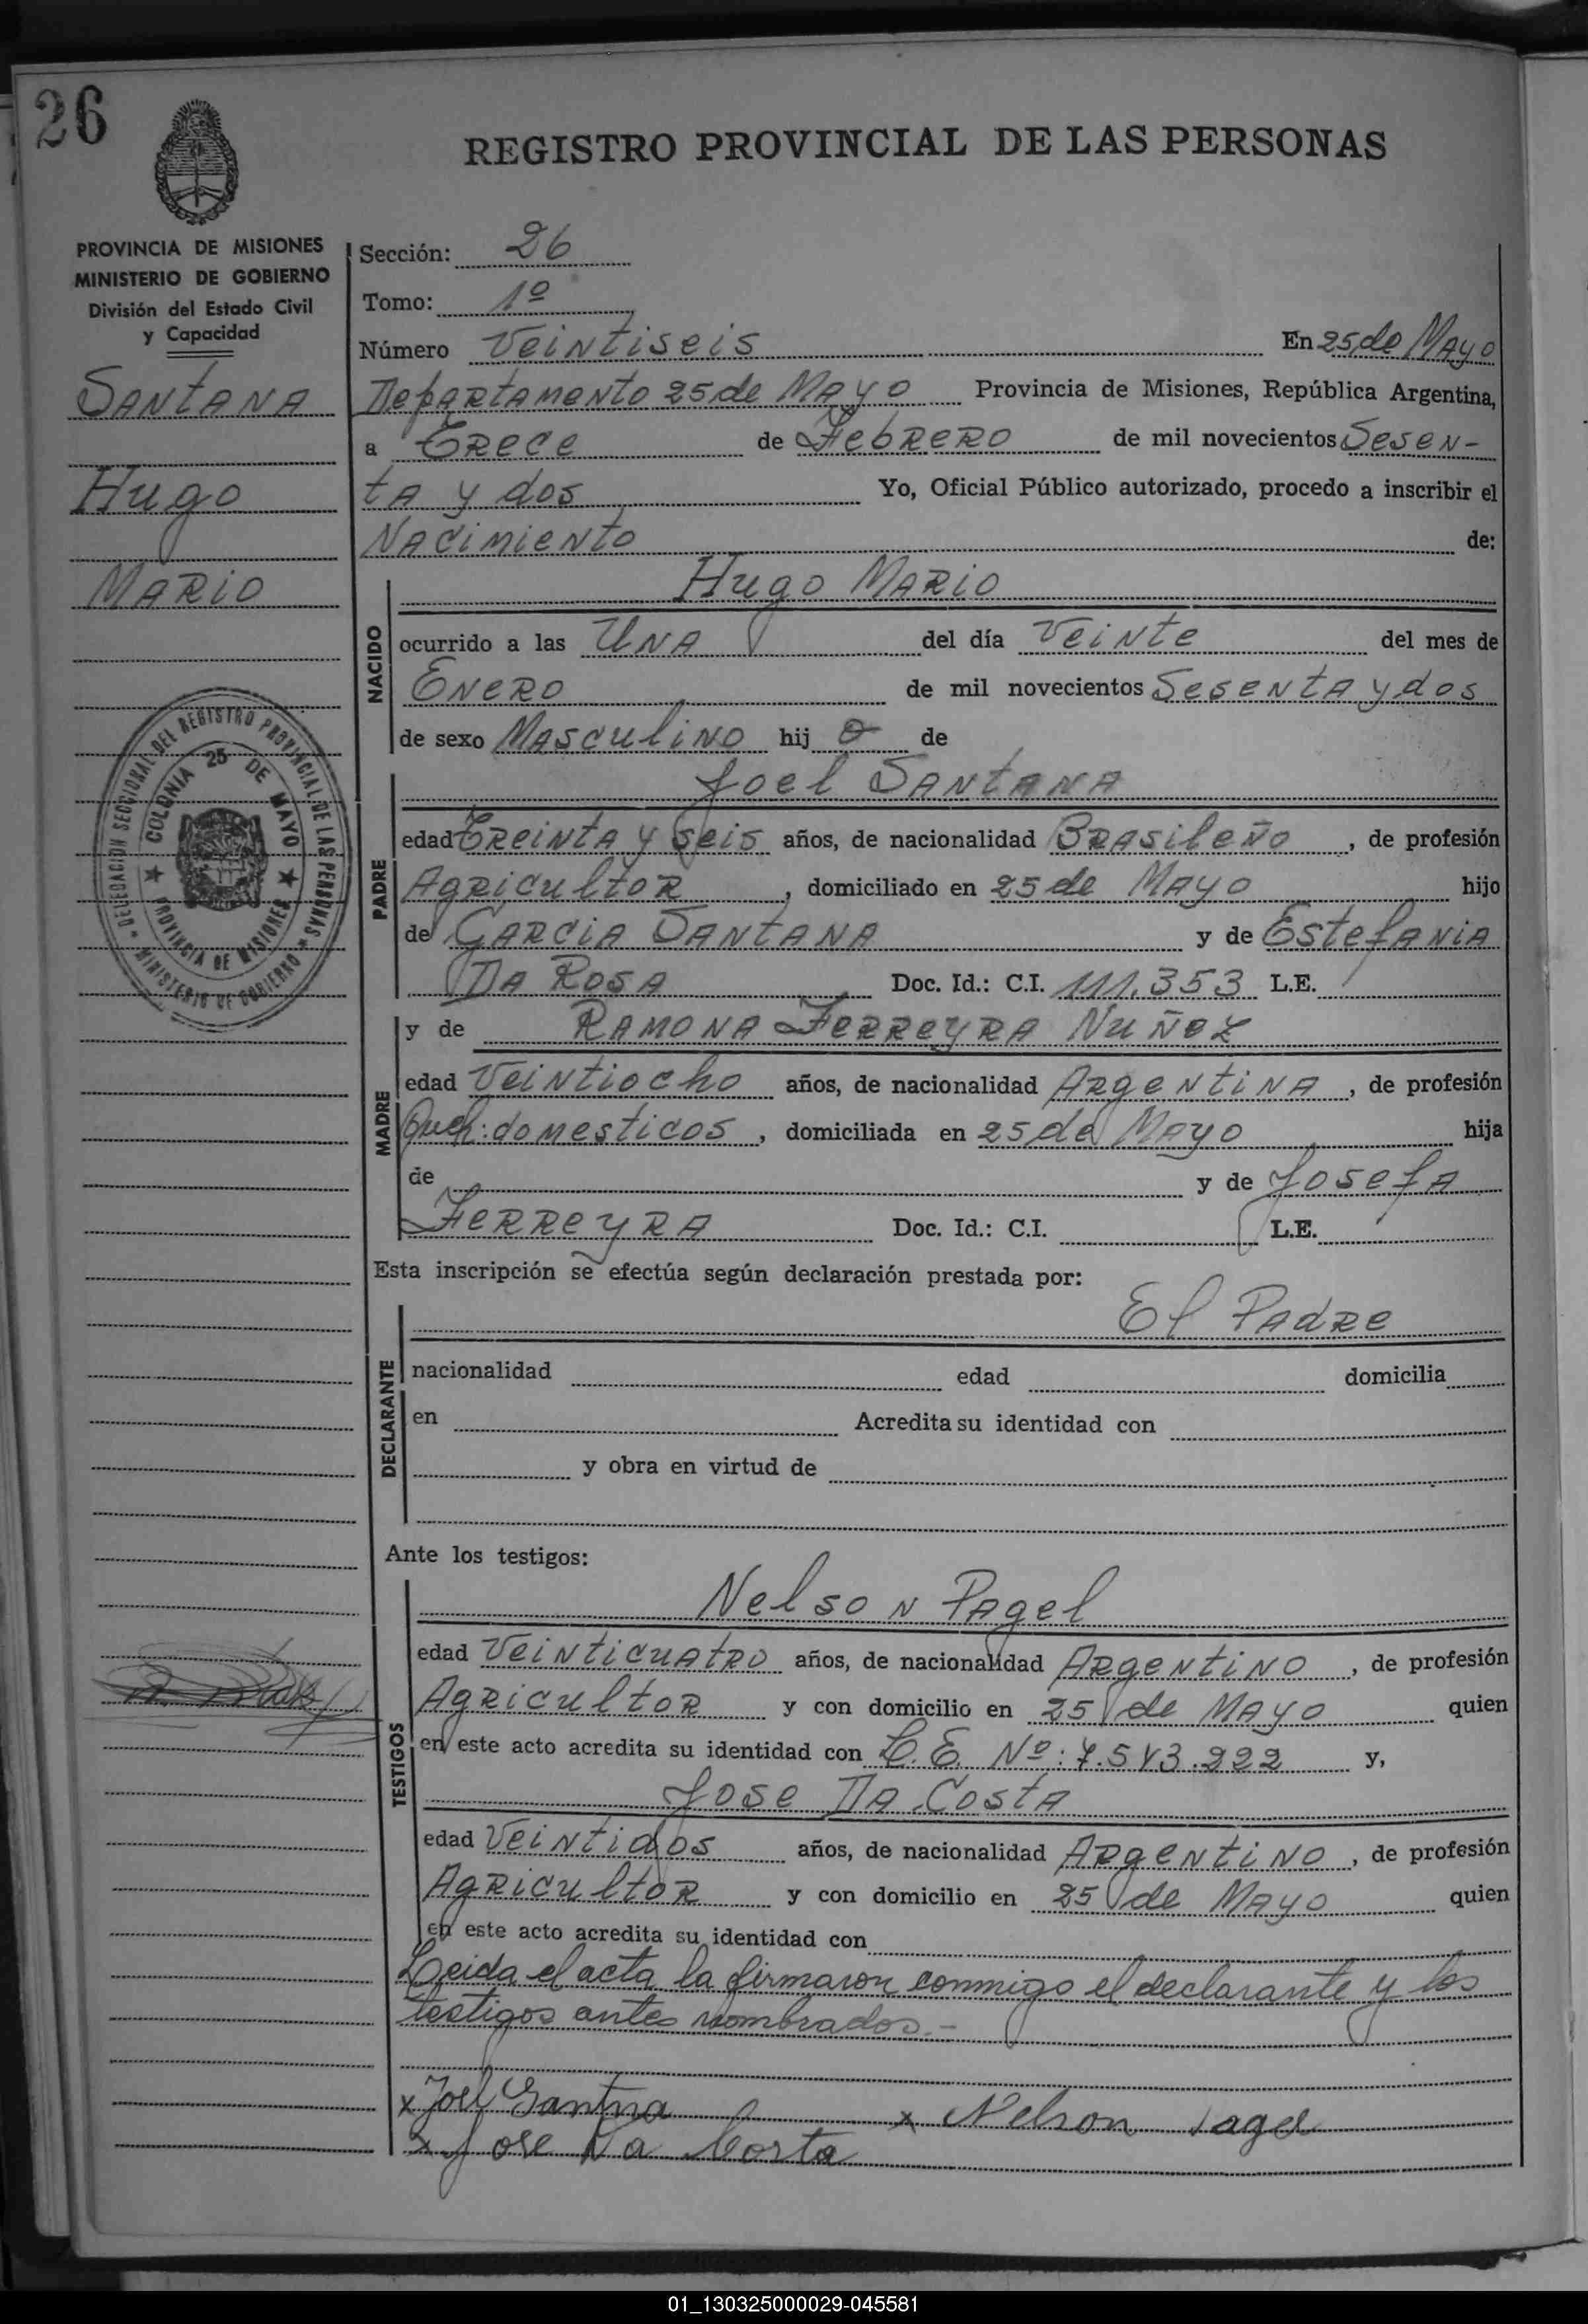 26
REGISTRO PROVINCIAL DE LAS PERSONAS
PROVINCIA DE MISIONES
MINISTERIO DE GOBIERNO
División del Estado Civil
y Capacidad
SANTANA
Hugo
MARIO
DELEGACION SECCIONAL DEL REGISTRO PROVINCIAL DE LAS PERSONAS
MINISTERIO DE GOBIERNO
COLONIA 25 DE MAYO
PROVINCIA DE MISIONES
Sección: 26
Tomo: 1º
Número Veintiseis En 25 de Mayo
Departamento 25 de Mayo Provincia de Misiones, República Argentina,
a Trece de Febrero de mil novecientos Sesen-
ta y dos Yo, Oficial Público autorizado, procedo a inscribir el
Nacimiento de:
Hugo Mario
NACIDO
ocurrido a las Una del día Veinte del mes de
Enero de mil novecientos Sesenta y dos
de sexo Masculino hij o de
Joel Santana
PADRE
edad Treinta y seis años, de nacionalidad Brasileño, de profesión
Agricultor, domiciliado en 25 de Mayo hijo
de Garcia Santana y de Estefania
Da Rosa Doc. Id.: C.I. 111.353 L.E.
y de Ramona Ferreyra Nuñez
MADRE
edad Veintiocho años, de nacionalidad Argentina, de profesión
Queh: domesticos, domiciliada en 25 de Mayo hija
de y de Josefa
Ferreyra Doc. Id.: C.I. L.E.
Esta inscripción se efectúa según declaración prestada por:
El Padre
DECLARANTE
nacionalidad edad domicilia
en Acredita su identidad con
y obra en virtud de
Ante los testigos:
Nelson Pagel
TESTIGOS
edad Veinticuatro años, de nacionalidad Argentino, de profesión
Agricultor y con domicilio en 25 de Mayo quien
en este acto acredita su identidad con L.E. Nº: 7.543.222 y,
Jose Da Costa
edad Veintidos años, de nacionalidad Argentino, de profesión
Agricultor y con domicilio en 25 de Mayo quien
en este acto acredita su identidad con
Leida el acta la firmaron conmigo el declarante y los
testigos antes nombrados.-
x Joel Santna x Nelson Pagel
x Jose Da Costa
01_130325000029-045581